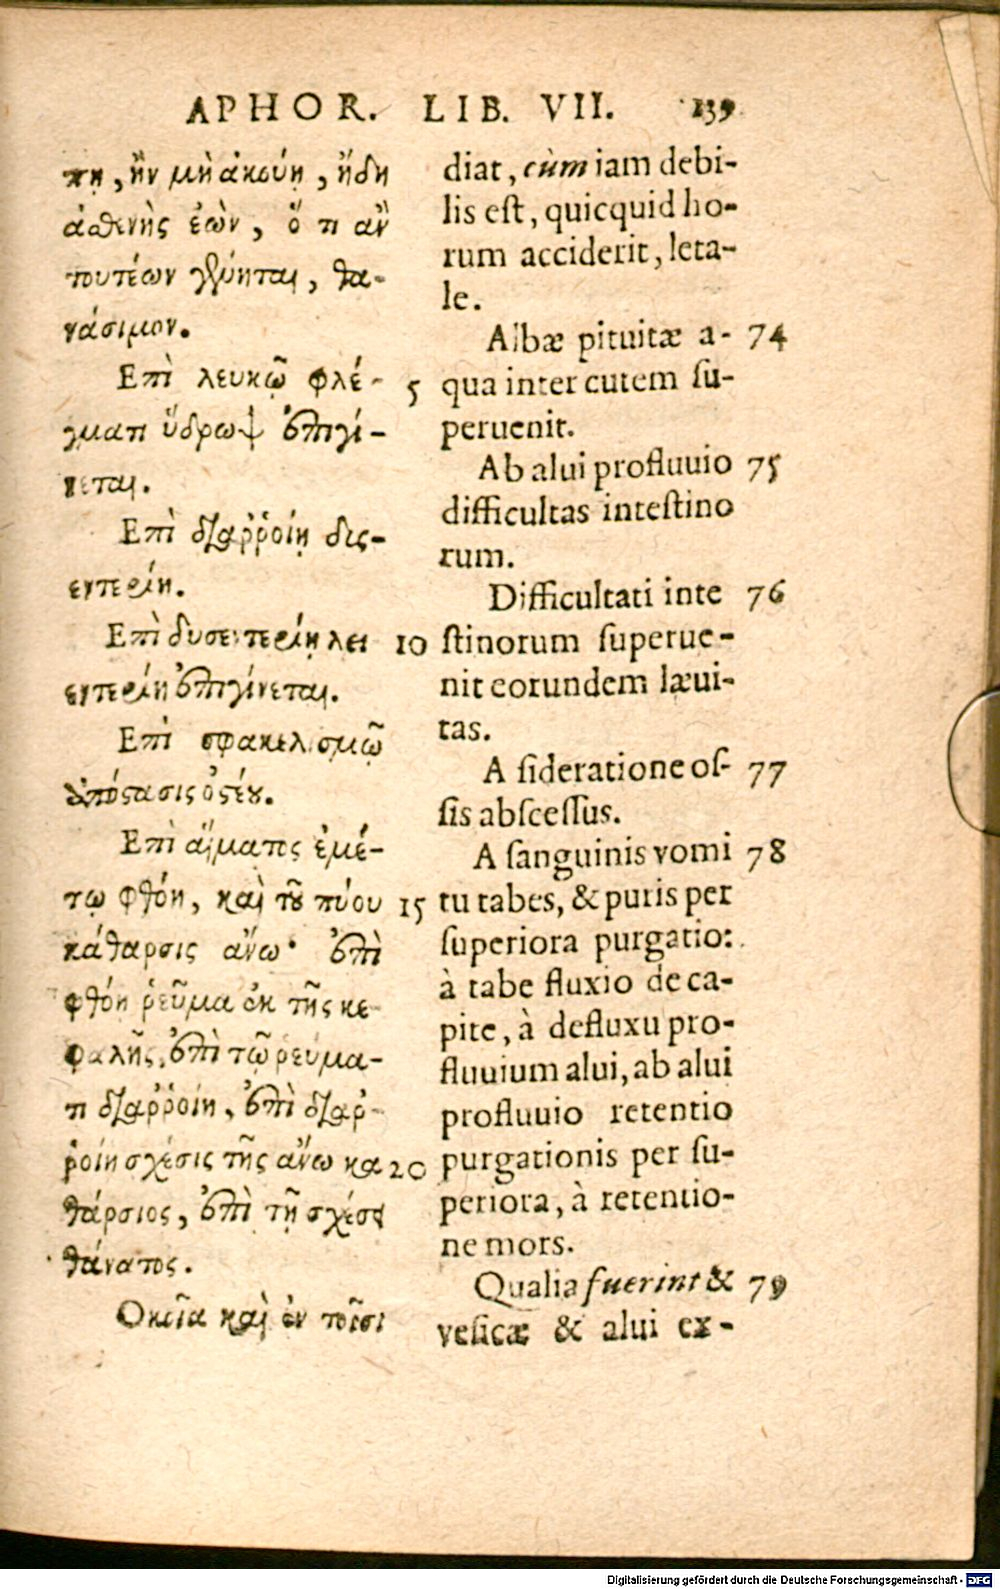 APHOR. LIB. VII. 139
πῃ, ἢν μὴ ἀκούῃ, ἤδη
ἀσθενὴς ἐὼν, ὅ τι ἂν
τουτέων γένηται, θα-
νάσιμον.
Επὶ λευκῷ φλέ-
γματι ὕδρωψ ἐπιγί-
νεται.
Επὶ διαῤῥοίῃ δις-
εντερίη.
Επὶ δυσεντερίῃ λει
εντερίη ἐπιγίνεται.
Επὶ σφακελισμῷ
ἀπόστασις ὀστέου.
Επὶ αἵματος ἐμέ-
τῳ φθόη, καὶ τοῦ πύου
κάθαρσις ἄνω· ἐπὶ
φθόῃ ῥεῦμα ἐκ τῆς κε-
φαλῆς, ἐπὶ τῷ ῥεύμα-
τι διαῤῥοίη, ἐπὶ διαῤ-
ῥοίῃ σχέσις τῆς ἄνω κα
θάρσιος, ἐπὶ τῇ σχέσει
θάνατος.
Οκοῖα καὶ ἐν τοῖσι
5
10
15
20
diat, cùm iam debi-
lis est, quicquid ho-
rum acciderit, leta-
le.
Albæ pituitæ a- 74
qua inter cutem su-
peruenit.
Ab alui profluuio 75
difficultas intestino
rum.
Difficultati inte 76
stinorum superue-
nit eorundem læui-
tas.
A sideratione os- 77
sis abscessus.
A sanguinis vomi 78
tu tabes, & puris per
superiora purgatio:
à tabe fluxio de ca-
pite, à defluxu pro-
fluuium alui, ab alui
profluuio retentio
purgationis per su-
periora, à retentio-
ne mors.
Qualia fuerint & 79
vesicæ & alui ex-
Digitalisierung gefördert durch die Deutsche Forschungsgemeinschaft - DFG